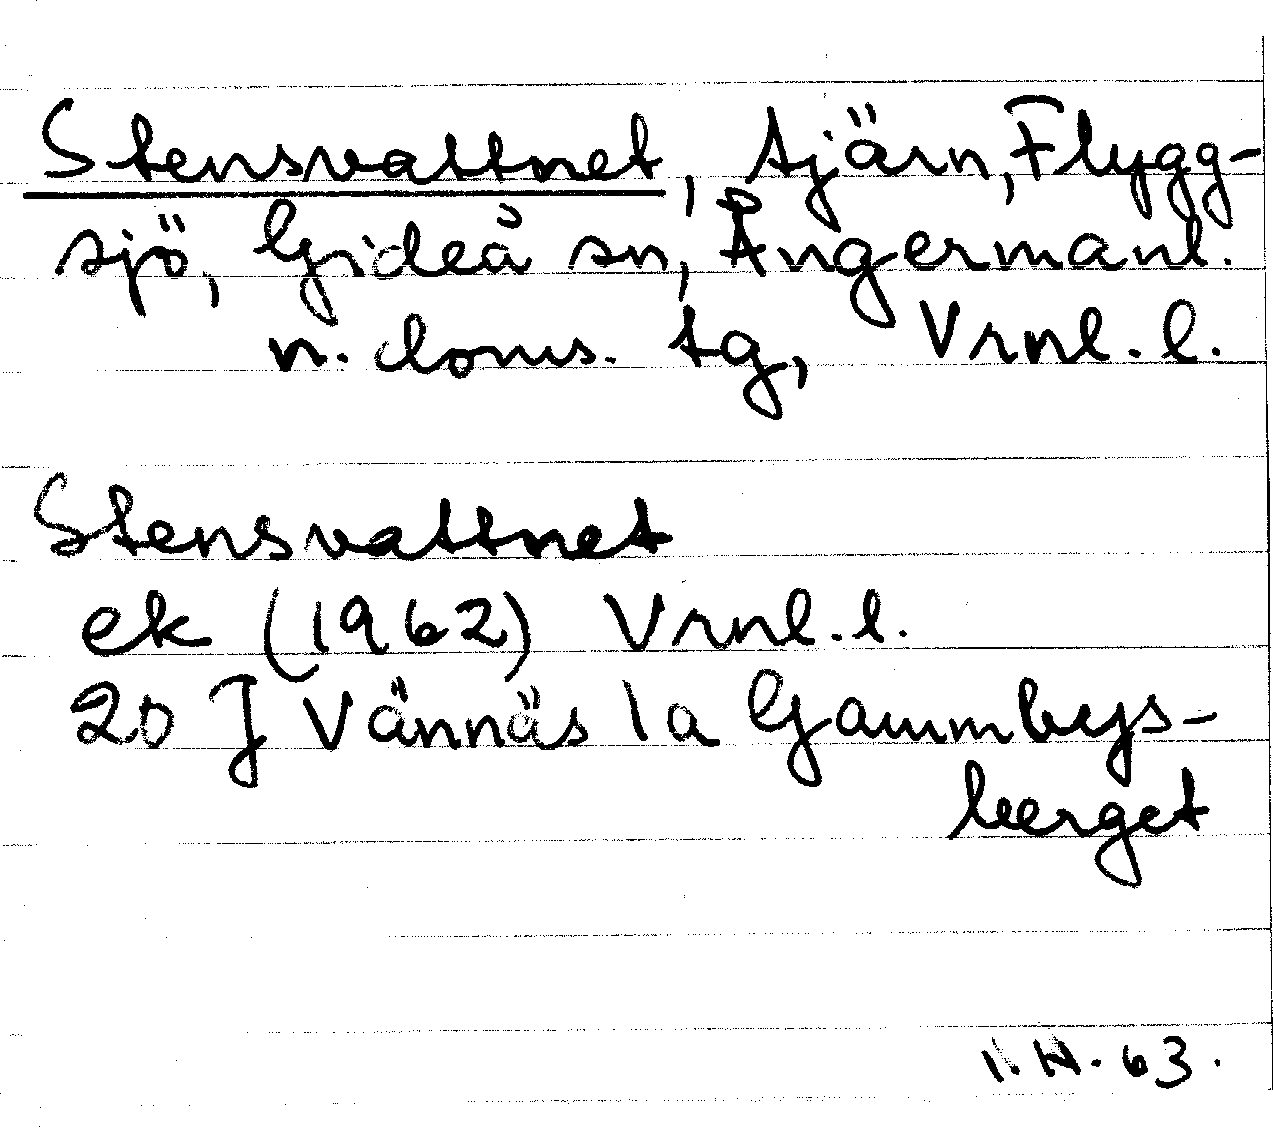 Stensvattnet, tjärn, Flygg-
sjö, Gideå sn, Ångermanl.
n. doms. tg, Vrnl. l.
Stensvattnet
ek (1962) Vrnl. l.
20 J Vännäs 1a Gammbys-
berget
I. H. 63.